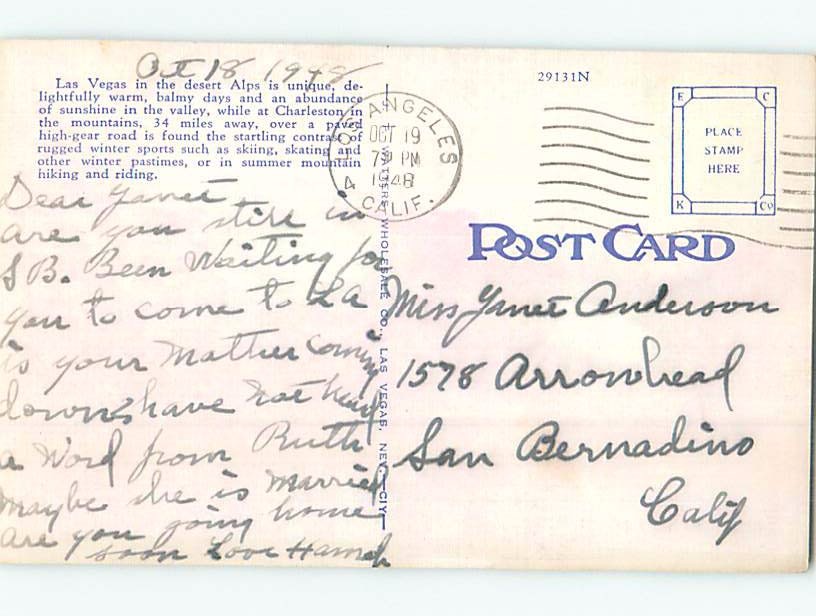 Oct 18 1948
Las Vegas in the desert Alps is unique, de-
lightfully warm, balmy days and an abundance
of sunshine in the valley, while at Charleston in
the mountains, 34 miles away, over a paved
high-gear road is found the startling contrast of
rugged winter sports such as skiing, skating and
other winter pastimes, or in summer mountain
hiking and riding.
Dear Yanet
are you still in
S B. Been Waiting for
you to come to La
is your Mother coming
down? have not heard
a Word from Ruth
maybe she is married
are you going home
soon Love Hannah
WESTERN WHOLESALE CO., LAS VEGAS, NEV.—CIY—
LOS ANGELES
OCT 19
7 PM
1948
4 CALIF.
29131N
E C
PLACE
STAMP
HERE
K Co
POST CARD
Miss Yanet Anderson
1578 Arrowhead
San Bernadino
Calif